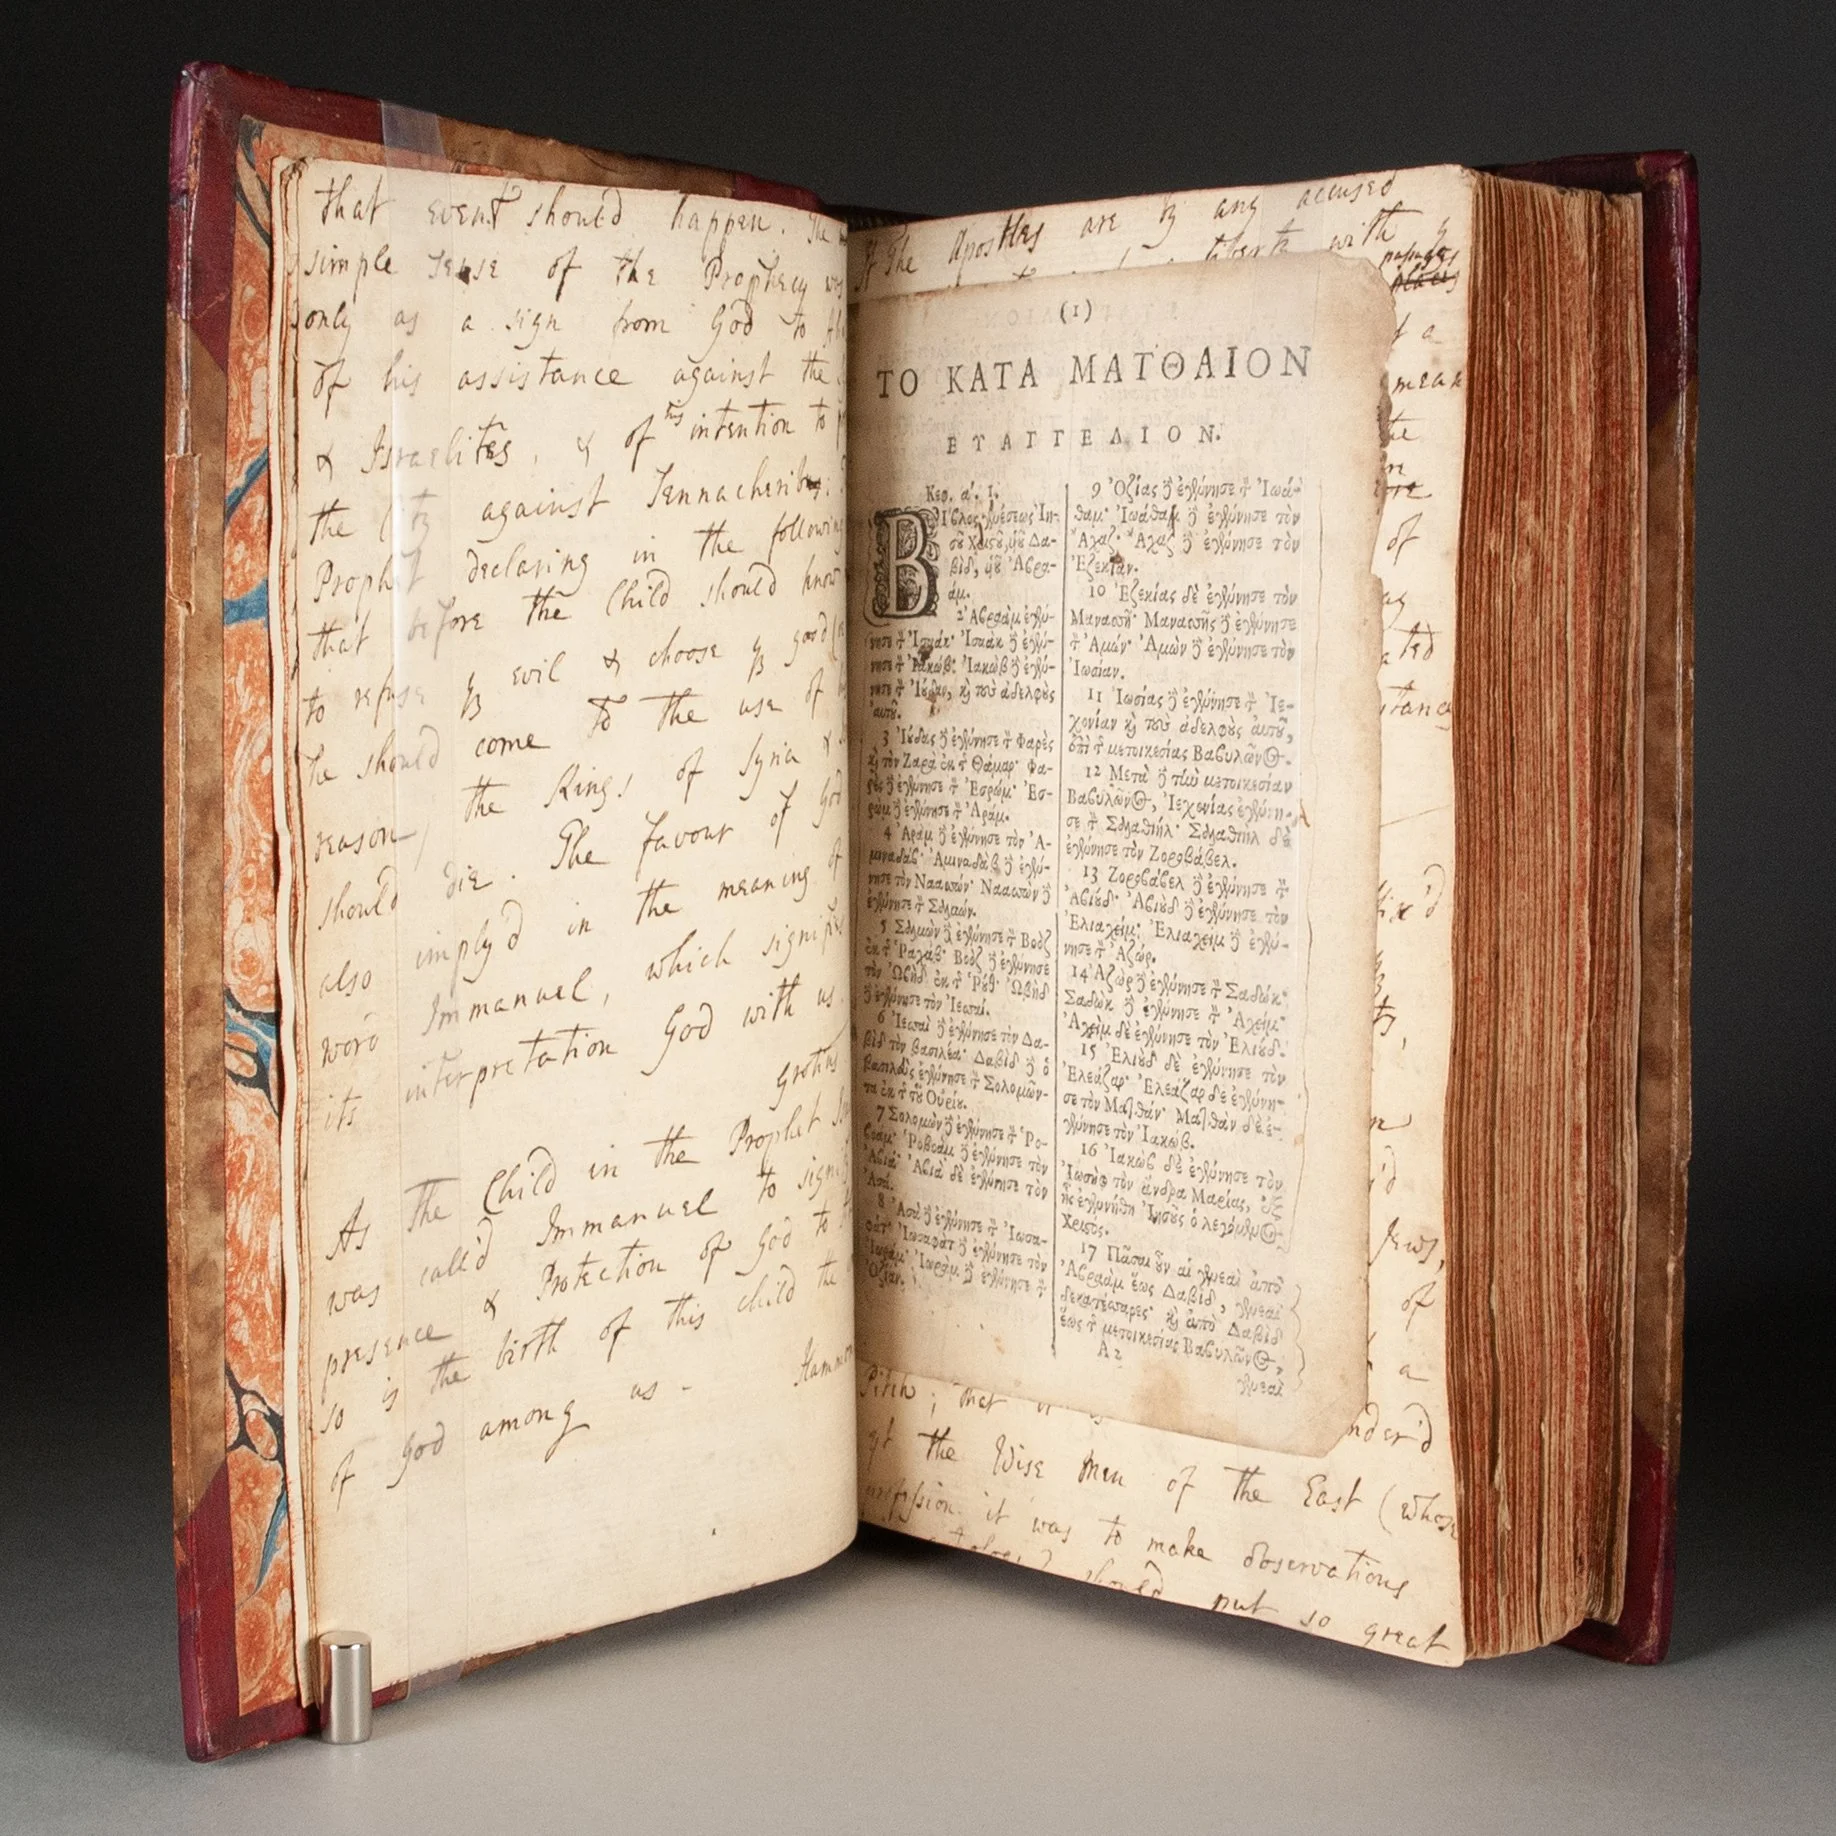 that event should happen. The
simple sense of the Prophecy was
only as a sign from God to
of his assistance against the
& Israelites, & of his intention to
the City against Sennacherib
Prophet declaring in the following
that before the Child should know
to refuse ye evil & choose ye good
he should come to the use of
reason, the Kings of Syria &
should die. The favour of God
also imply'd in the meaning of
word Immanuel, which signifies
its interpretation God with us.
Grotius
As the Child in the Prophet
was call'd Immanuel to signify
presence & Protection of God to
so is the birth of this child the
of God among us -
If the Apostles are by any accused
liberty with ye
passages
(1)
ΤΟ ΚΑΤΑ ΜΑΤΘΑΙΟΝ
ΕΥΑΓΓΕΛΙΟΝ.
Κεφ. α΄. 1.
Βίβλος γενέσεως Ἰη-
σοῦ Χριστοῦ, υἱοῦ Δα-
βὶδ, υἱοῦ Ἀβρα-
άμ.
2 Ἀβραὰμ ἐγέν-
νησε τ Ἰσαάκ· Ἰσαὰκ δὲ ἐγέν-
νησε τ Ἰακώβ· Ἰακὼβ δὲ ἐγέν-
νησε τ Ἰούδαν, καὶ τοὺς ἀδελφοὺς
αὐτοῦ.
3 Ἰούδας δὲ ἐγέννησε τ Φαρὲς
καὶ τὸν Ζαρὰ ἐκ τ Θάμαρ· Φα-
ρὲς δὲ ἐγέννησε τ Ἐσρώμ· Ἐσ-
ρὼμ δὲ ἐγέννησε τ Ἀράμ.
4 Ἀρὰμ δὲ ἐγέννησε τὸν Ἀ-
μιναδάβ· Ἀμιναδὰβ δὲ ἐγέν-
νησε τὸν Ναασσών· Ναασσὼν δὲ
ἐγέννησε τ Σαλμών.
5 Σαλμὼν δὲ ἐγέννησε τ Βοὸζ
ἐκ τ Ῥαχάβ· Βοὸζ δὲ ἐγέννησε
τὸν Ὠβὴδ ἐκ τ Ῥούθ· Ὠβὴδ
δὲ ἐγέννησε τὸν Ἰεσσαί.
6 Ἰεσσαὶ δὲ ἐγέννησε τὸν Δα-
βὶδ τὸν βασιλέα· Δαβὶδ δὲ ὁ
βασιλεὺς ἐγέννησε τ Σολομῶν-
τα ἐκ τ τοῦ Οὐρίου.
7 Σολομὼν δὲ ἐγέννησε τ Ῥο-
βοάμ· Ῥοβοὰμ δὲ ἐγέννησε τὸν
Ἀβιά· Ἀβιὰ δὲ ἐγέννησε τὸν
Ἀσά.
8 Ἀσὰ δὲ ἐγέννησε τ Ἰωσα-
φάτ· Ἰωσαφὰτ δὲ ἐγέννησε τὸν
Ἰωράμ· Ἰωρὰμ δὲ ἐγέννησε τ
Ὀζίαν.
9 Ὀζίας δὲ ἐγέννησε τ Ἰωά-
θαμ· Ἰωάθαμ δὲ ἐγέννησε τὸν
Ἄχαζ· Ἄχαζ δὲ ἐγέννησε τὸν
Ἐζεκίαν.
10 Ἐζεκίας δὲ ἐγέννησε τὸν
Μανασσῆ· Μανασσῆς δὲ ἐγέννησε
τ Ἀμών· Ἀμὼν δὲ ἐγέννησε τὸν
Ἰωσίαν.
11 Ἰωσίας δὲ ἐγέννησε τ Ἰε-
χονίαν καὶ τοὺς ἀδελφοὺς αὐτοῦ,
ἐπὶ τ μετοικεσίας Βαβυλῶνος.
12 Μετὰ δὲ τὴν μετοικεσίαν
Βαβυλῶνος, Ἰεχονίας ἐγέννη-
σε τ Σαλαθιήλ· Σαλαθιὴλ δὲ
ἐγέννησε τὸν Ζοροβάβελ.
13 Ζοροβάβελ δὲ ἐγέννησε τ
Ἀβιούδ· Ἀβιοὺδ δὲ ἐγέννησε τὸν
Ἐλιακείμ· Ἐλιακεὶμ δὲ ἐγέν-
νησε τ Ἀζώρ.
14 Ἀζὼρ δὲ ἐγέννησε τ Σαδώκ·
Σαδὼκ δὲ ἐγέννησε τ Ἀχείμ·
Ἀχεὶμ δὲ ἐγέννησε τὸν Ἐλιούδ.
15 Ἐλιοὺδ δὲ ἐγέννησε τὸν
Ἐλεάζαρ· Ἐλεάζαρ δὲ ἐγέννη-
σε τὸν Ματθάν· Ματθὰν δὲ ἐ-
γέννησε τὸν Ἰακώβ.
16 Ἰακὼβ δὲ ἐγέννησε τὸν
Ἰωσὴφ τὸν ἄνδρα Μαρίας, ἐξ
ἧς ἐγεννήθη Ἰησοῦς ὁ λεγόμενος
Χριστός.
17 Πᾶσαι οὖν αἱ γενεαὶ ἀπὸ
Ἀβραὰμ ἕως Δαβὶδ, γενεαὶ
δεκατέσσαρες· καὶ ἀπὸ Δαβὶδ
ἕως τ μετοικεσίας Βαβυλῶνος,
A 2
γενεαὶ
of the Wise Men of the East (whose
profession it was to make observations
should put so great